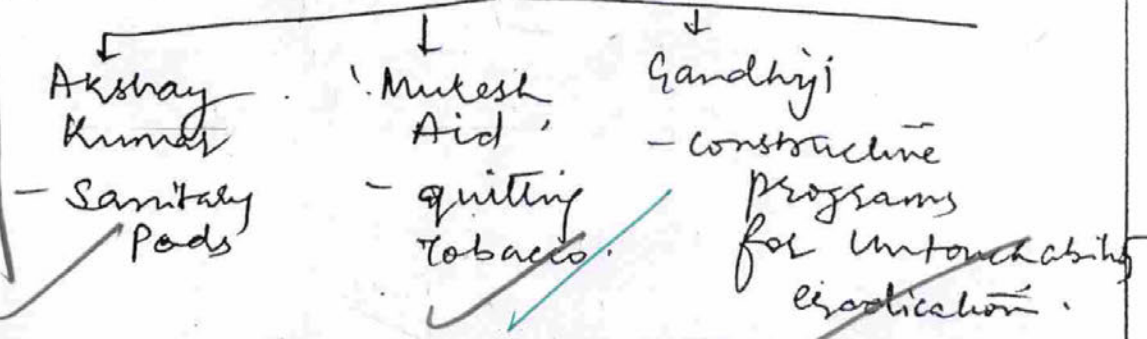 Akshay
Kumar
- Sanitary
Pads
'Mukesh
Aid'
- quitting
Tobacco.
Gandhiji
- constructive
programs
for Untouchability
eradication.